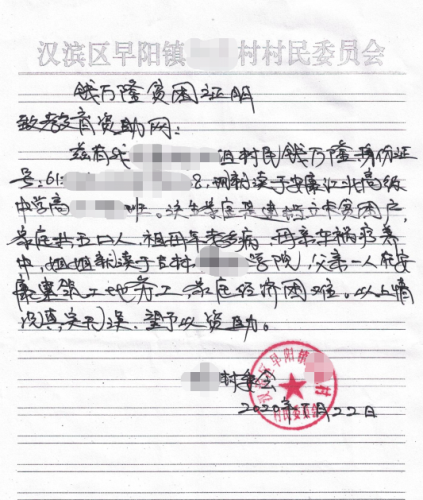 汉滨区早阳镇 村村民委员会
钱万隆贫困证明
致教育资助网：
兹有我 组村民钱万隆身份证
号:61 8，现就读于安康江北高级
中学高 班。该生家庭是建档立卡贫困户，
家庭共五口人，祖母年老多病，母亲车祸疗养
中，姐姐就读于吉林 学院，父亲一人在安
康建筑工地务工，家庭经济困难。以上情
况真实无误，望予以资助。
村委会
汉滨区早阳镇 村
2020年 月22日